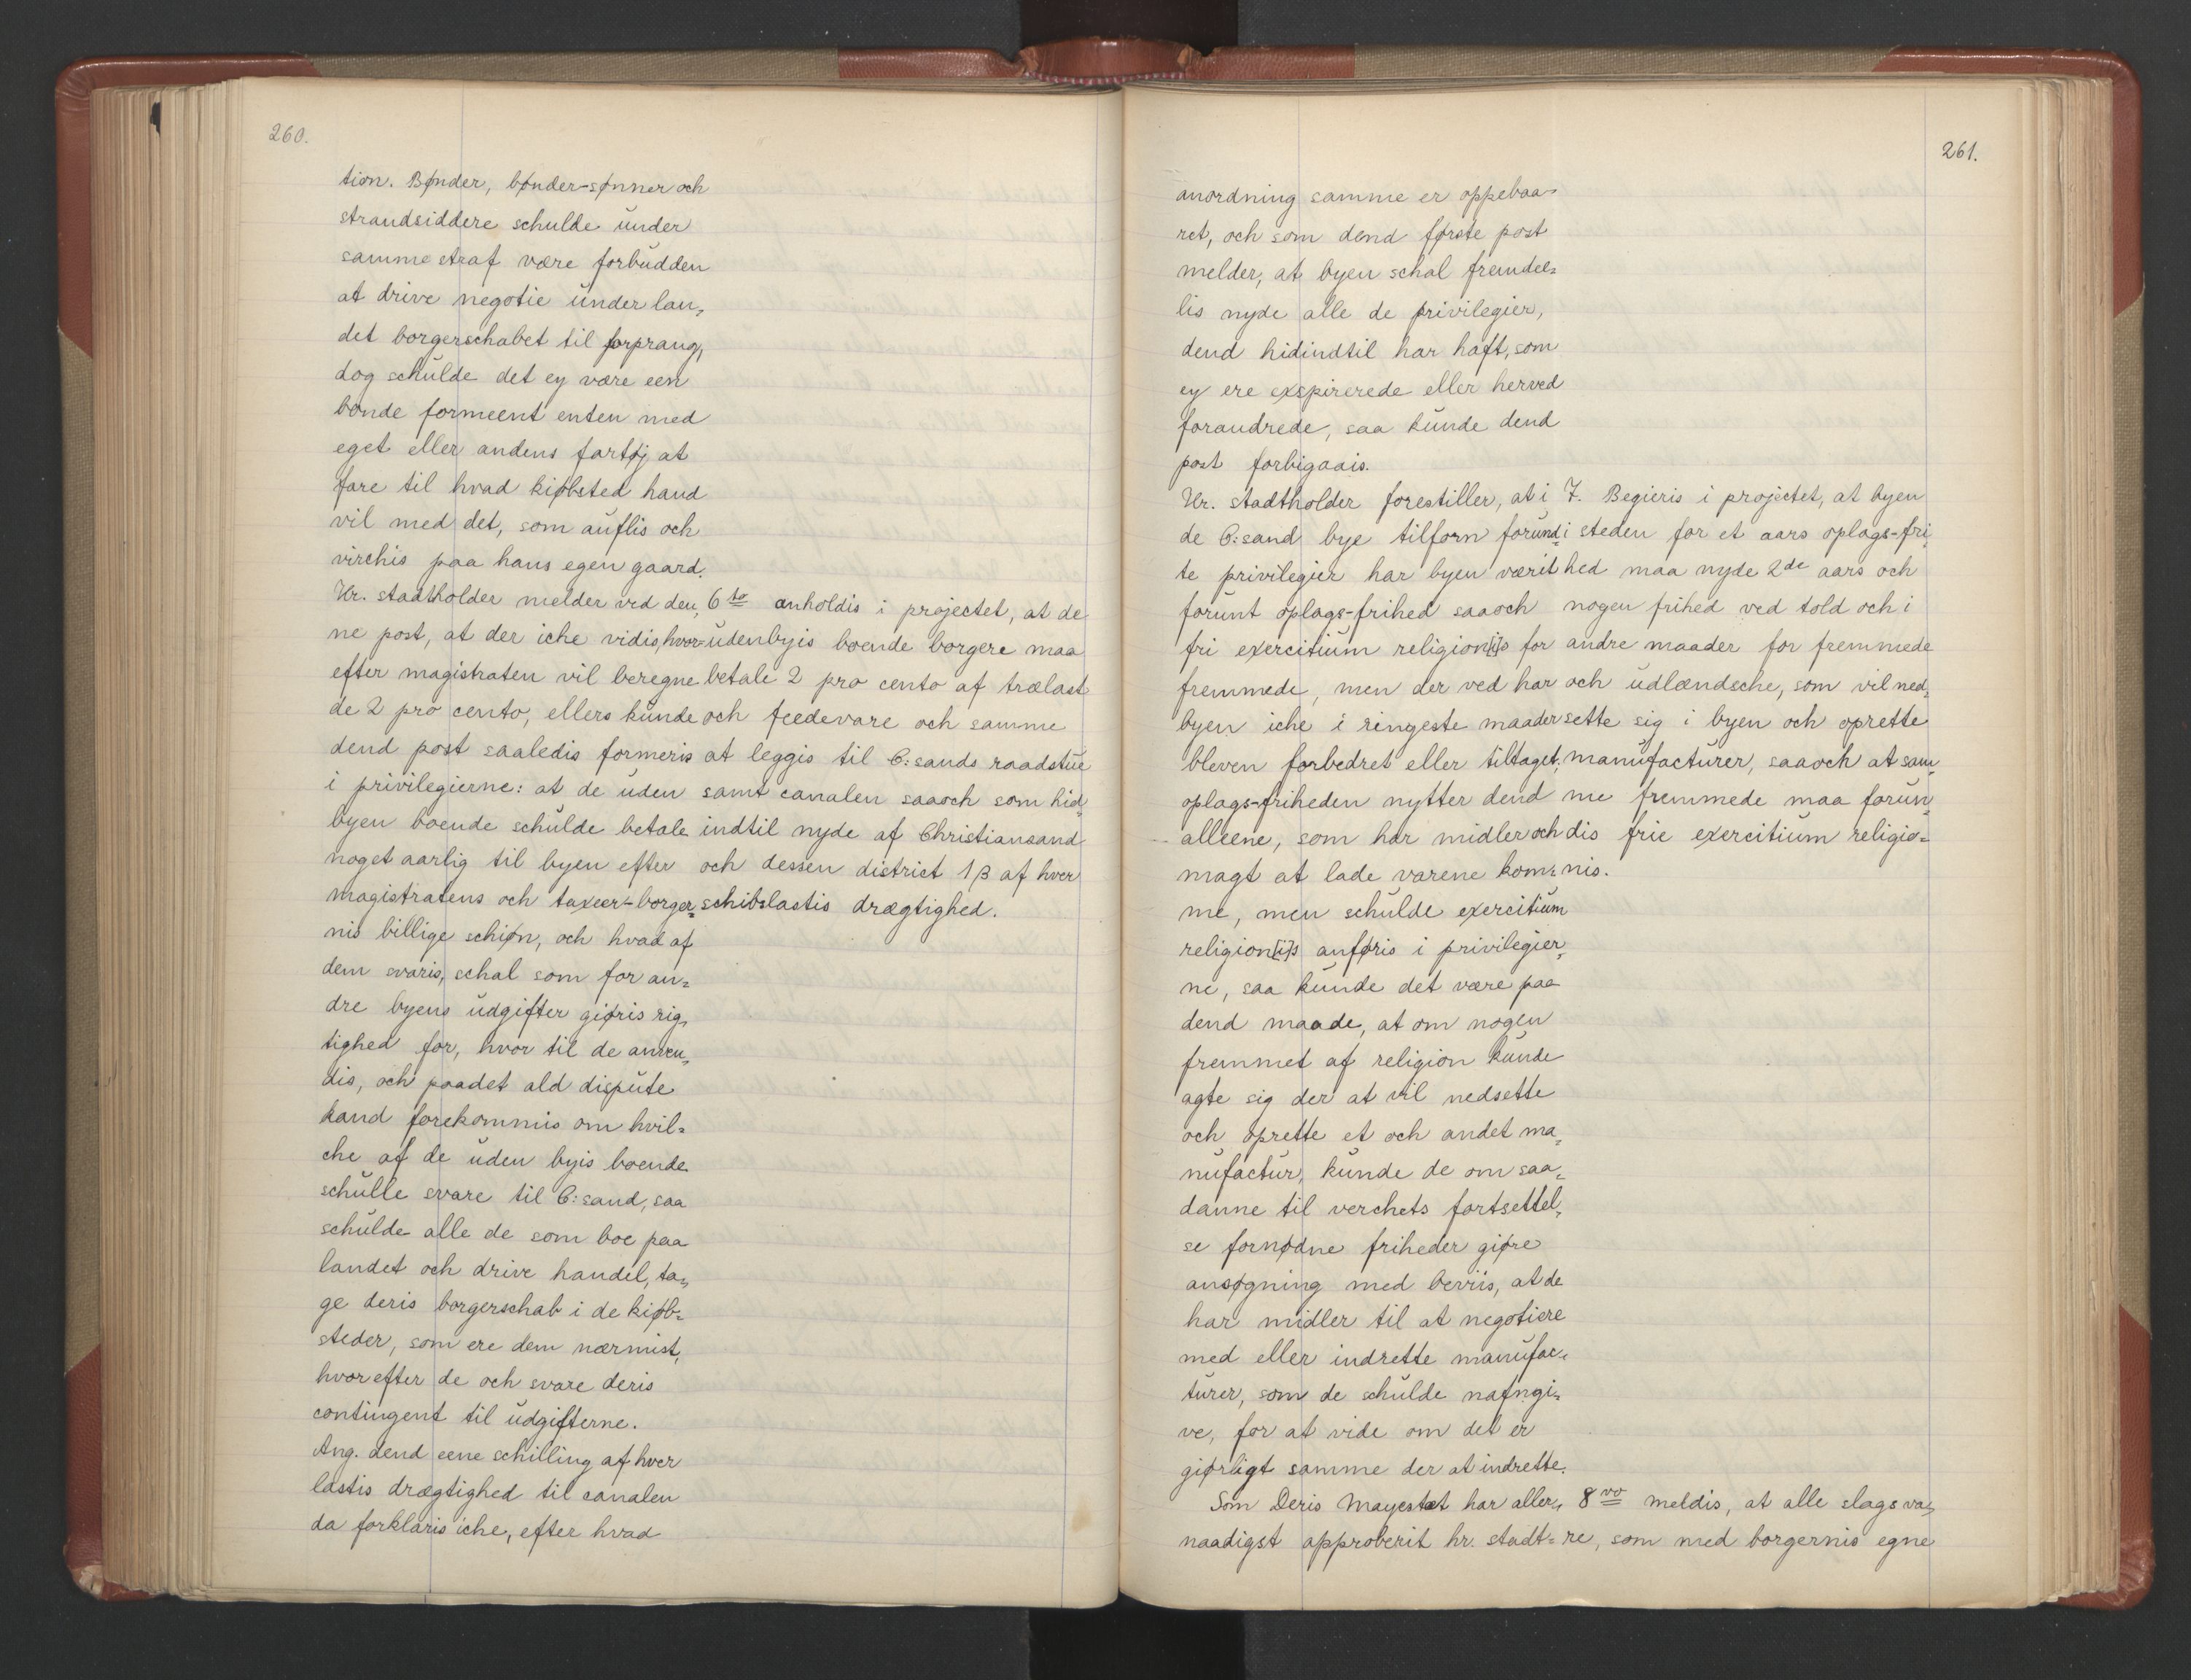 260.
tion. Bønder, bønder-sønner och
strandsiddere schulde under
samme straf være forbudden
at drive negotie under lan,
det borgerschabet til forprang,
dog schulde det ey være een
bonde formeent enten med
eget eller andens fartøj at
fare til hvad kiøbsted hand
vil med det, som auflis och
virchis paa hans egen gaard.
Hr. stadtholder melder ved den,
ne post, at der iche vidis, hvor=
efter magistraten vil beregne
de 2 pro cento, ellers kunde
dend post saaledis formeris
i privilegierne: at de uden
byen boende schulde betale
noget aarlig til byen efter
magistratens och taxeer-borger=
nis billige schiøn, och hvad af
dem svaris, schal som for an=
dre byens udgifter giøris rig,
tighed for, hvor til de anven,
dis, och paadet ald dispute
kand forekommis om hvil=
che af de uden byis boende
schulle svare til C:sand, saa
schulde alle de som boe paa
landet och drive handel, ta,
ge deris borgerschab i de kiøb=
steder, som ere dem nærmist,
hvorefter de och svare deris
contingent til udgifterne.
Ang. dend eene schilling af hver
lastis drægtighed til canalen
da forklaris iche, efter hvad
6to anholdis i projectet, at de
udenbyis boende borgere maa
betale 2 pro cento af trælast
och feedevare och samme
at leggis til C:sands raadstue
samt canalen saaoch som hid,
indtil nyde af Christiansand
och dessen district 1 β af hver
schibslastis drægtighed.
261.
anordning samme er oppebaa=
ret, och som dend første post
melder, at byen schal fremdee=
lis nyde alle de privilegier,
dend hidindtil har haft, som
ey ere exspirerede eller herved
forandrede, saa kunde dend
post forbigaais.
Hr. stadtholder forestiller, at i
de C:sand bye tilforn forund=
te privilegier har byen værit
forunt oplags-frihed saaoch
fri exercitium religion[i]s for
fremmede, men der ved har
byen iche i ringeste maader
bleven forbedret eller tiltaget,
oplags-friheden nytter dend
alleene, som har midler och
magt at lade varene kom=
me, men schulde exercitium
religion[i]s anføris i privilegier,
ne, saa kunde det være paa
dend maade, at om nogen
fremmet af religion kunde
agte sig der at vil nedsette
och oprette et och andet ma,
nufactur, kunde de om saa,
danne til verchets fortsettel,
se fornødne friheder giøre
ansøgning med beviis, at de
har midler til at negotiere
med eller indrette manufac,
turer, som de schulde nafngi,
ve, for at vide om det er
giørligt samme der at indrette.
Som Deris Mayestæt har aller,
naadigst approberit hr. stadt=
7. Begieris i projectet, at byen
i steden for et aars oplags-fri,
hed maa nyde 2de aars och
nogen frihed ved told och i
andre maader for fremmede
och udlændsche, som vil ned,
sette sig i byen och oprette
manufacturer, saaoch at sam,
me fremmede maa forun,
dis frie exercitium religio=
nis.
8vo meldis, at alle slags va,
re, som med borgernis egne